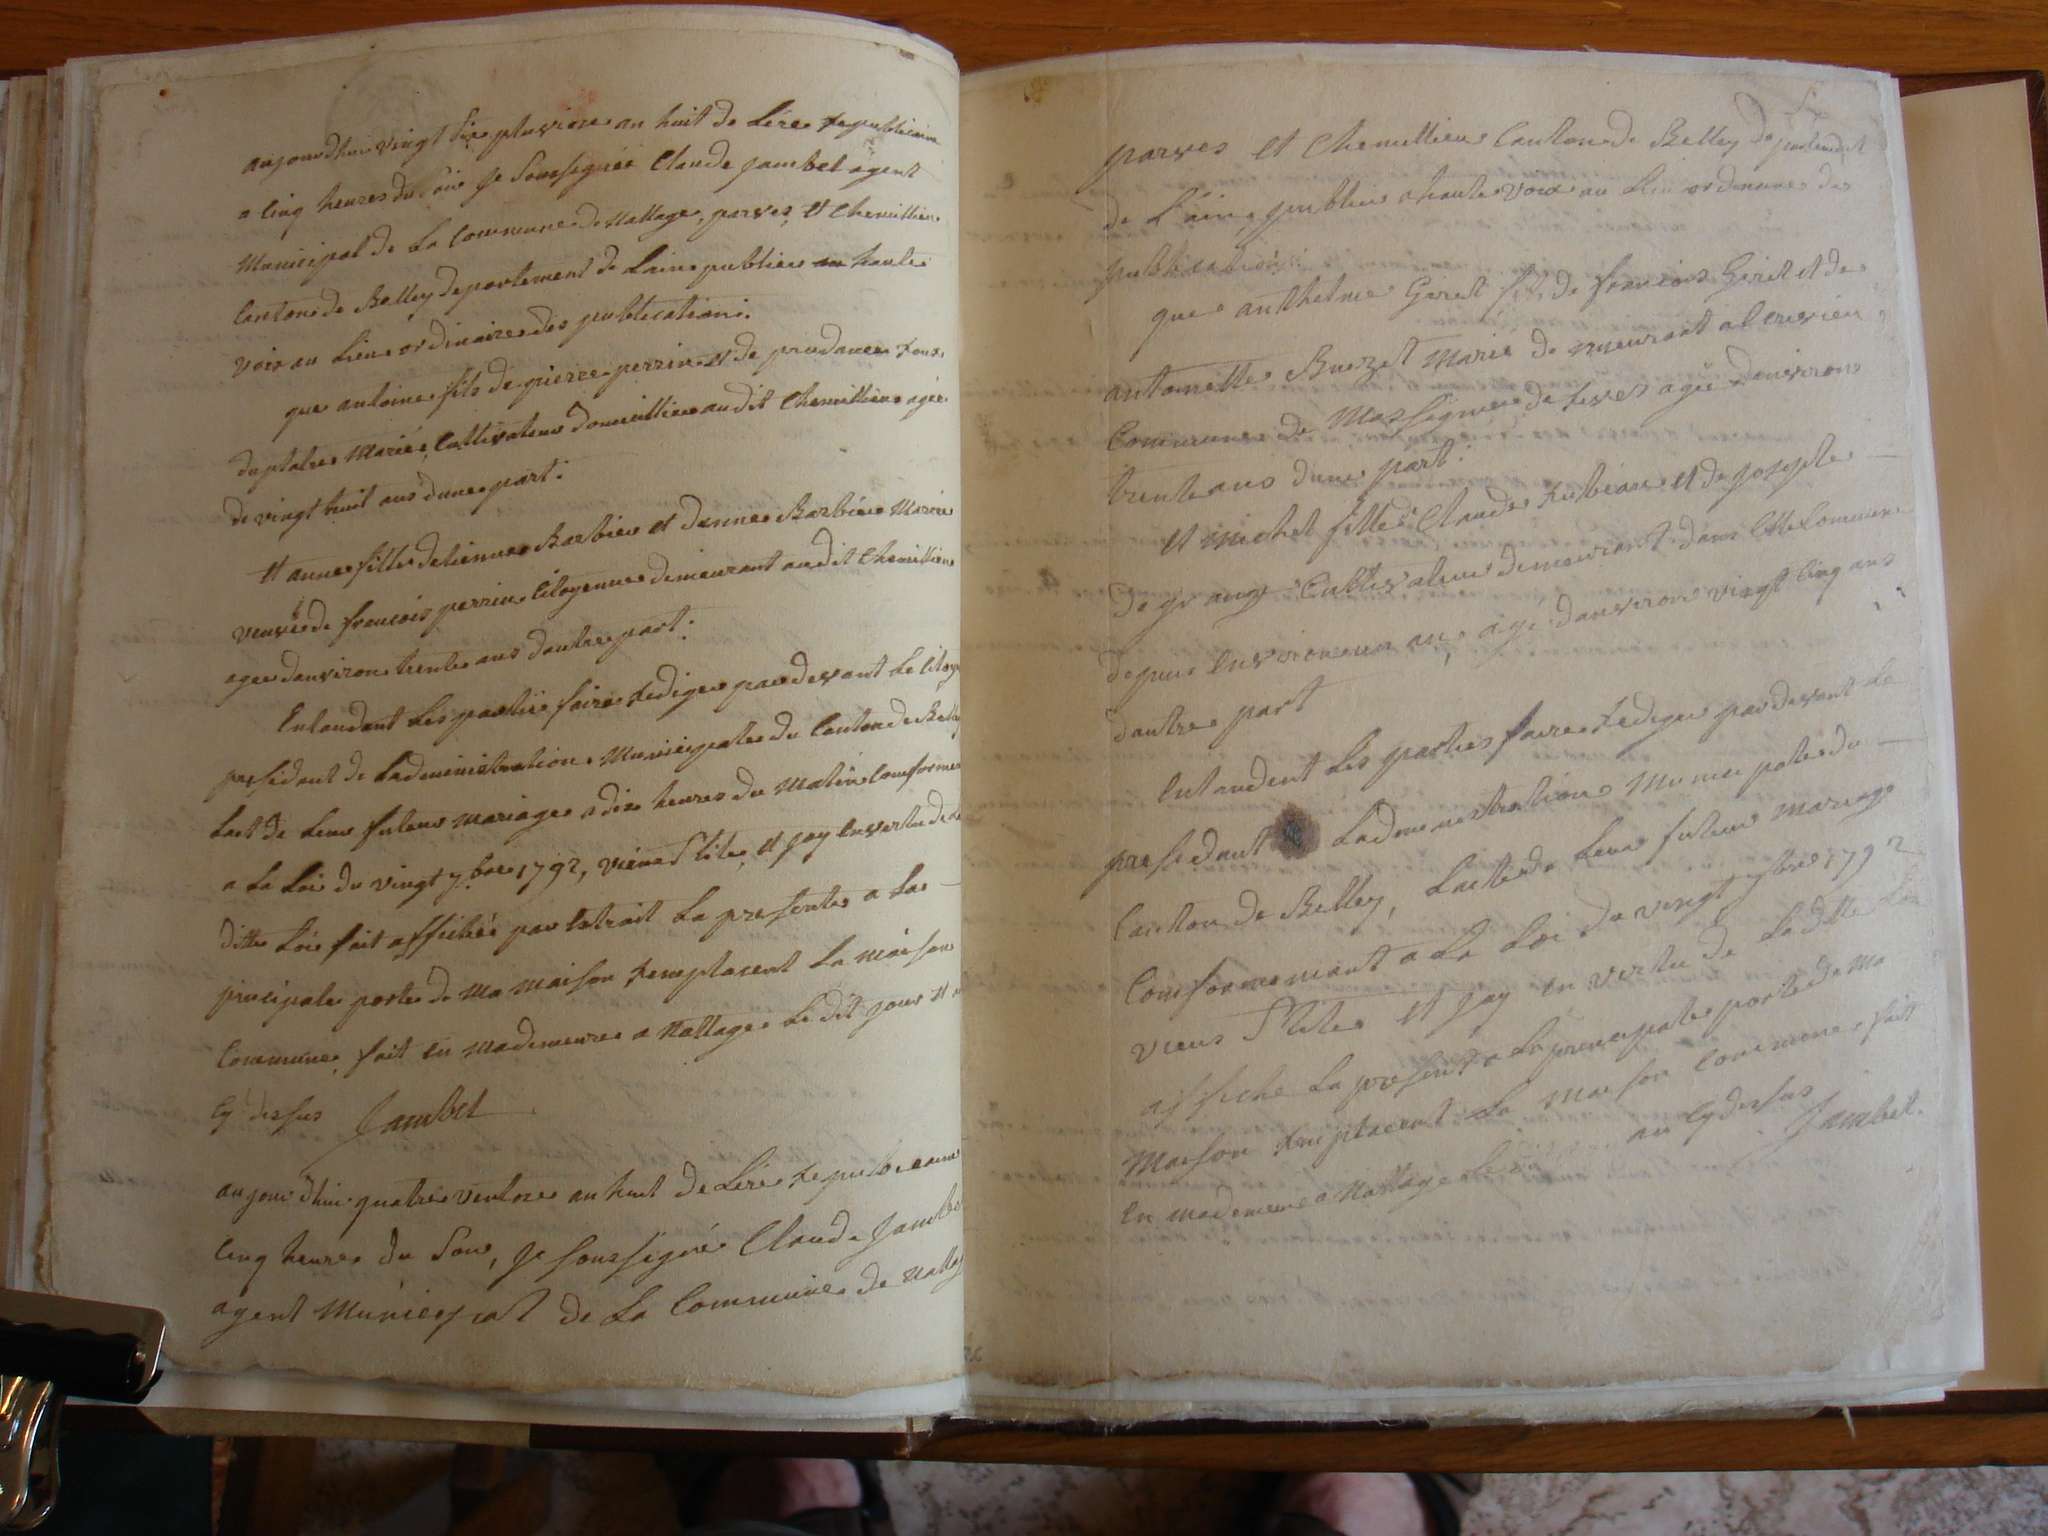 aujourdhui vingt six pluviose an huit de Lere republicaine
a Cinq heures du soir Je soussignée Claude jambet agent
Municipal de La Commune de Nattage, parves, et Chemillieu
Canton de Belley departement de Lain publiee en haute
voix au Lieu ordinaire des publications.
que antoine fils de pierre perrin et de prudance
duplatre Mariée, Cultivateur domicillier audit Chemillieu agée
de vingt huit ans dune part :
et anne fille detienne Barbier et danne Barbier Mariee
veuve de francois perrin Citoyenne demeurant audit Chemillieu
agee danviron trente ans dautre part :
Entandant Les partie faire rediger par devant Le Citoy
president de Ladministration Municipale du Canton de Belley
Lact de Leur futeur mariage a dix heures du Matin Comforme
a La Loi du vingt 7bre 1792, vieux Stile, et jay en vertu de la
ditte Loi fait affichée par Extrait La presente a La
principale porte de Ma Maison remplacent La Maison
Commune, fait en Mademeure a Nattage Le dit jour et
Cy dessus Jambet
aujourdhui quatre ventose an huit de Lere republicaine
Cinq heures du Soir, Je soussigné Claude Jambet
agent Municipal de La Commune de Nattage
parves et Chemillieu Canton de Belley departement
de Lain, publiee a haute voix au Lieu ordinaire des
publications
que anthelme Geret fils de francois Geret et de
antoinette Buezet Marie demeurant a
Commune de Massignieu de rives agée danviron
trente ans dune part.
et Michel fille Claude rubiau et de josephe
de grange Cultivateur demeurant dans Cette Commune
depuis Environ un an, agé danviron vingt Cinq ans
dautre part
Entandent Les parties faire rediger par devant Le
president Ladministration Municipale du
Canton de Belley, Lacte de Leur futeur mariage
Comformemant a La Loi du vingt 7bre 1792
vieux Stile et jay en vertu de Laditte Loi
affiche La present a La principale porte de Ma
Maison remplacent La Maison Commune fait
En mademeure a Nattage Le an Cy dessus
Jambet.